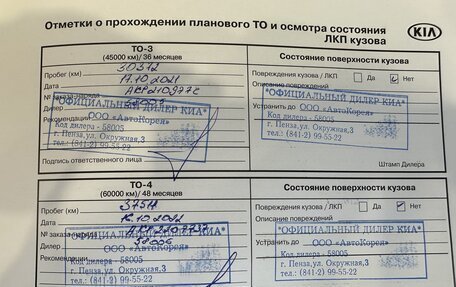 Отметки о прохождении планового ТО и осмотра состояния
ЛКП кузова
KIA
ТО-3
(45000 км)/ 36 месяцев
Состояние поверхности кузова
Пробег (км) 30312
Повреждения кузова / ЛКП Да Нет
Дата 17.10.2021
Описание повреждений
№ заказа-наряда
Дилер 58005
"ОФИЦИАЛЬНЫЙ ДИЛЕР КИА"
ООО «АвтоКорея»
Код дилера - 58005
г. Пенза, ул. Окружная,3
тел.: (841-2) 99-55-22
Рекомендации
Устранить до
"ОФИЦИАЛЬНЫЙ ДИЛЕР КИА"
ООО «АвтоКорея»
Код дилера - 58005
г. Пенза, ул. Окружная,3
тел.: (841-2) 99-55-22
Подпись ответственного лица
Штамп Дилера
ТО-4
(60000 км)/ 48 месяцев
Состояние поверхности кузова
Пробег (км)
Повреждения кузова / ЛКП Да Нет
Дата 16.10.2022
Описание повреждений
№ заказа-наряда
Дилер 58005
ООО «АвтоКорея»
Код дилера - 58005
г. Пенза, ул. Окружная,3
тел.: (841-2) 99-55-22
Рекомендации
Устранить до
"ОФИЦИАЛЬНЫЙ ДИЛЕР КИА"
ООО «АвтоКорея»
Код дилера - 58005
г. Пенза, ул. Окружная,3
тел.: (841-2) 99-55-22